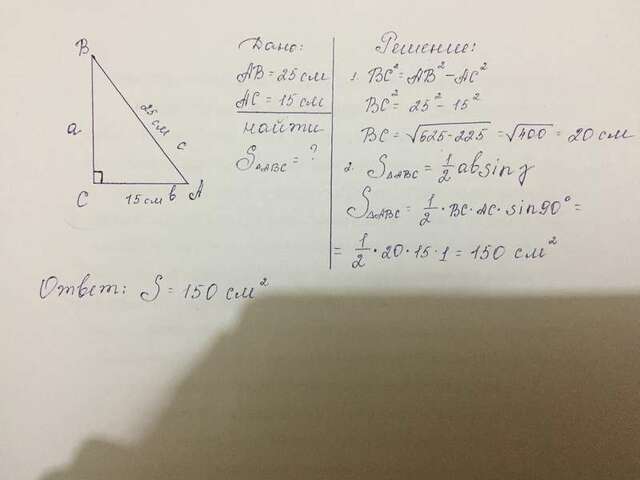 B
a
25 см
c
C
15 см
b
A
Дано:
AB = 25 см
AC = 15 см
найти
S△ABC = ?
Решение:
1. BC² = AB² - AC²
BC² = 25² - 15²
BC = √625-225 = √400 = 20 см
2. S△ABC = 1/2 ab sin γ
S△ABC = 1/2 · BC · AC · sin 90° =
= 1/2 · 20 · 15 · 1 = 150 см²
Ответ: S = 150 см²